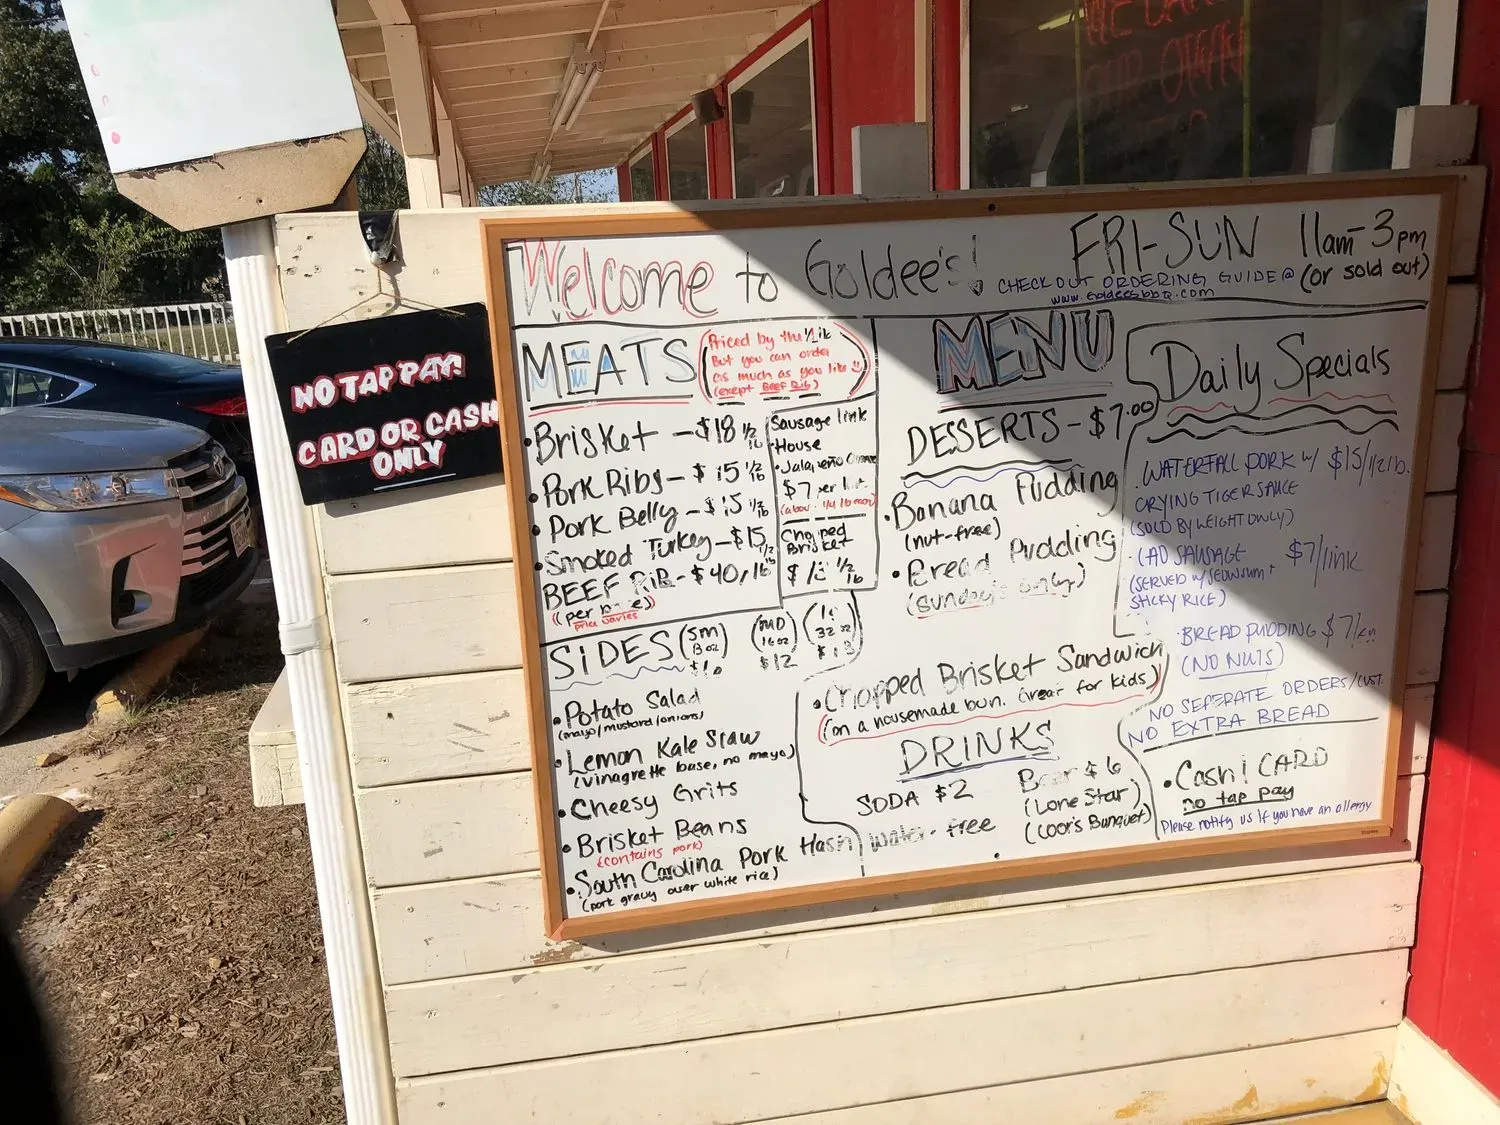 WE
OUR OWN
Welcome to Goldee's!
FRI-SUN 11am-3pm
(or sold out)
CHECK OUT ORDERING GUIDE @
www.GOLDEESBBQ.COM
NO TAP PAY!
CARD OR CASH
ONLY
MEATS
(Priced by the 1/2 lb
But you can order
as much as you like
(except Beef Rib)
• Brisket - $18 1/2 lb
• Pork Ribs - $15 1/2 lb
• Pork Belly - $15 1/2 lb
• Smoked Turkey - $15 1/2 lb
BEEF RIB - $40/lb
(per bone)
price varies
Sausage link
• House
• Jalapeño
$7 per
(about 1/4 lb each)
Chopped
Brisket
1/2 lb
SIDES
(sm
8 oz
(MD
16 oz
$12
32 oz
$18
• Potato Salad
(mayo/mustard/onions)
• Lemon Kale Slaw
(vinagrette base, no mayo)
• Cheesy Grits
• Brisket Beans
(contains pork)
• South Carolina Pork Hash
(pork gravy over white rice)
MENU
DESSERTS - $7.00
• Banana Pudding
(nut-free)
• Bread Pudding
(sunday's only)
• Chopped Brisket Sandwich
(on a housemade bun. Great for kids)
DRINKS
SODA $2
water - free
Beer $6
(Lone Star)
(Coors Banquet)
Daily Specials
• WATERFALL PORK w/ $15/1/2 lb.
CRYING TIGER SAUCE
(SOLD BY WEIGHT ONLY)
• LAO SAUSAGE $7/link
(SERVED W/ JEOW SOM +
STICKY RICE)
• BREAD PUDDING $7/
(NO NUTS)
NO SEPERATE ORDERS/CUST.
NO EXTRA BREAD
• Cash! CARD
no tap pay
Please notify us if you have an allergy